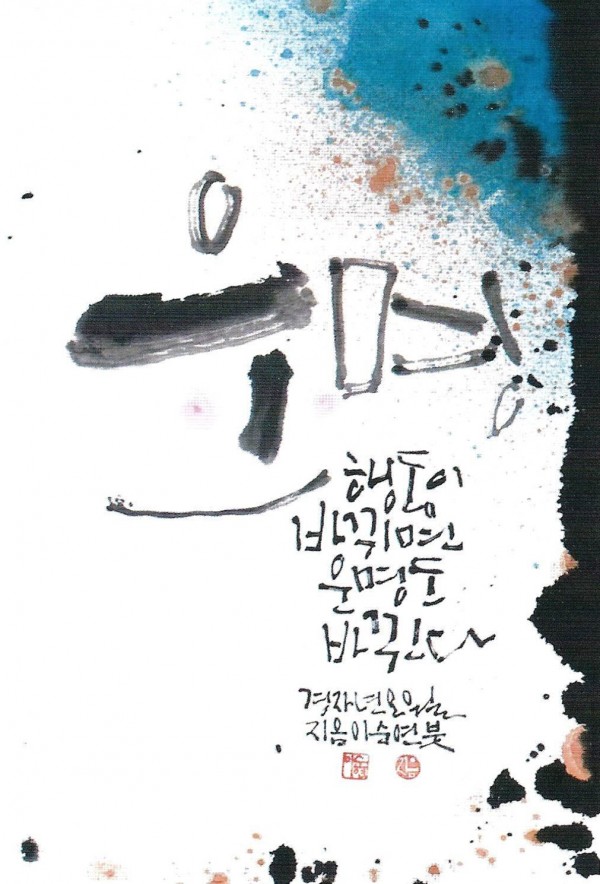 운명
행동이
바뀌면
운명도
바뀐다
경자년오월
지음